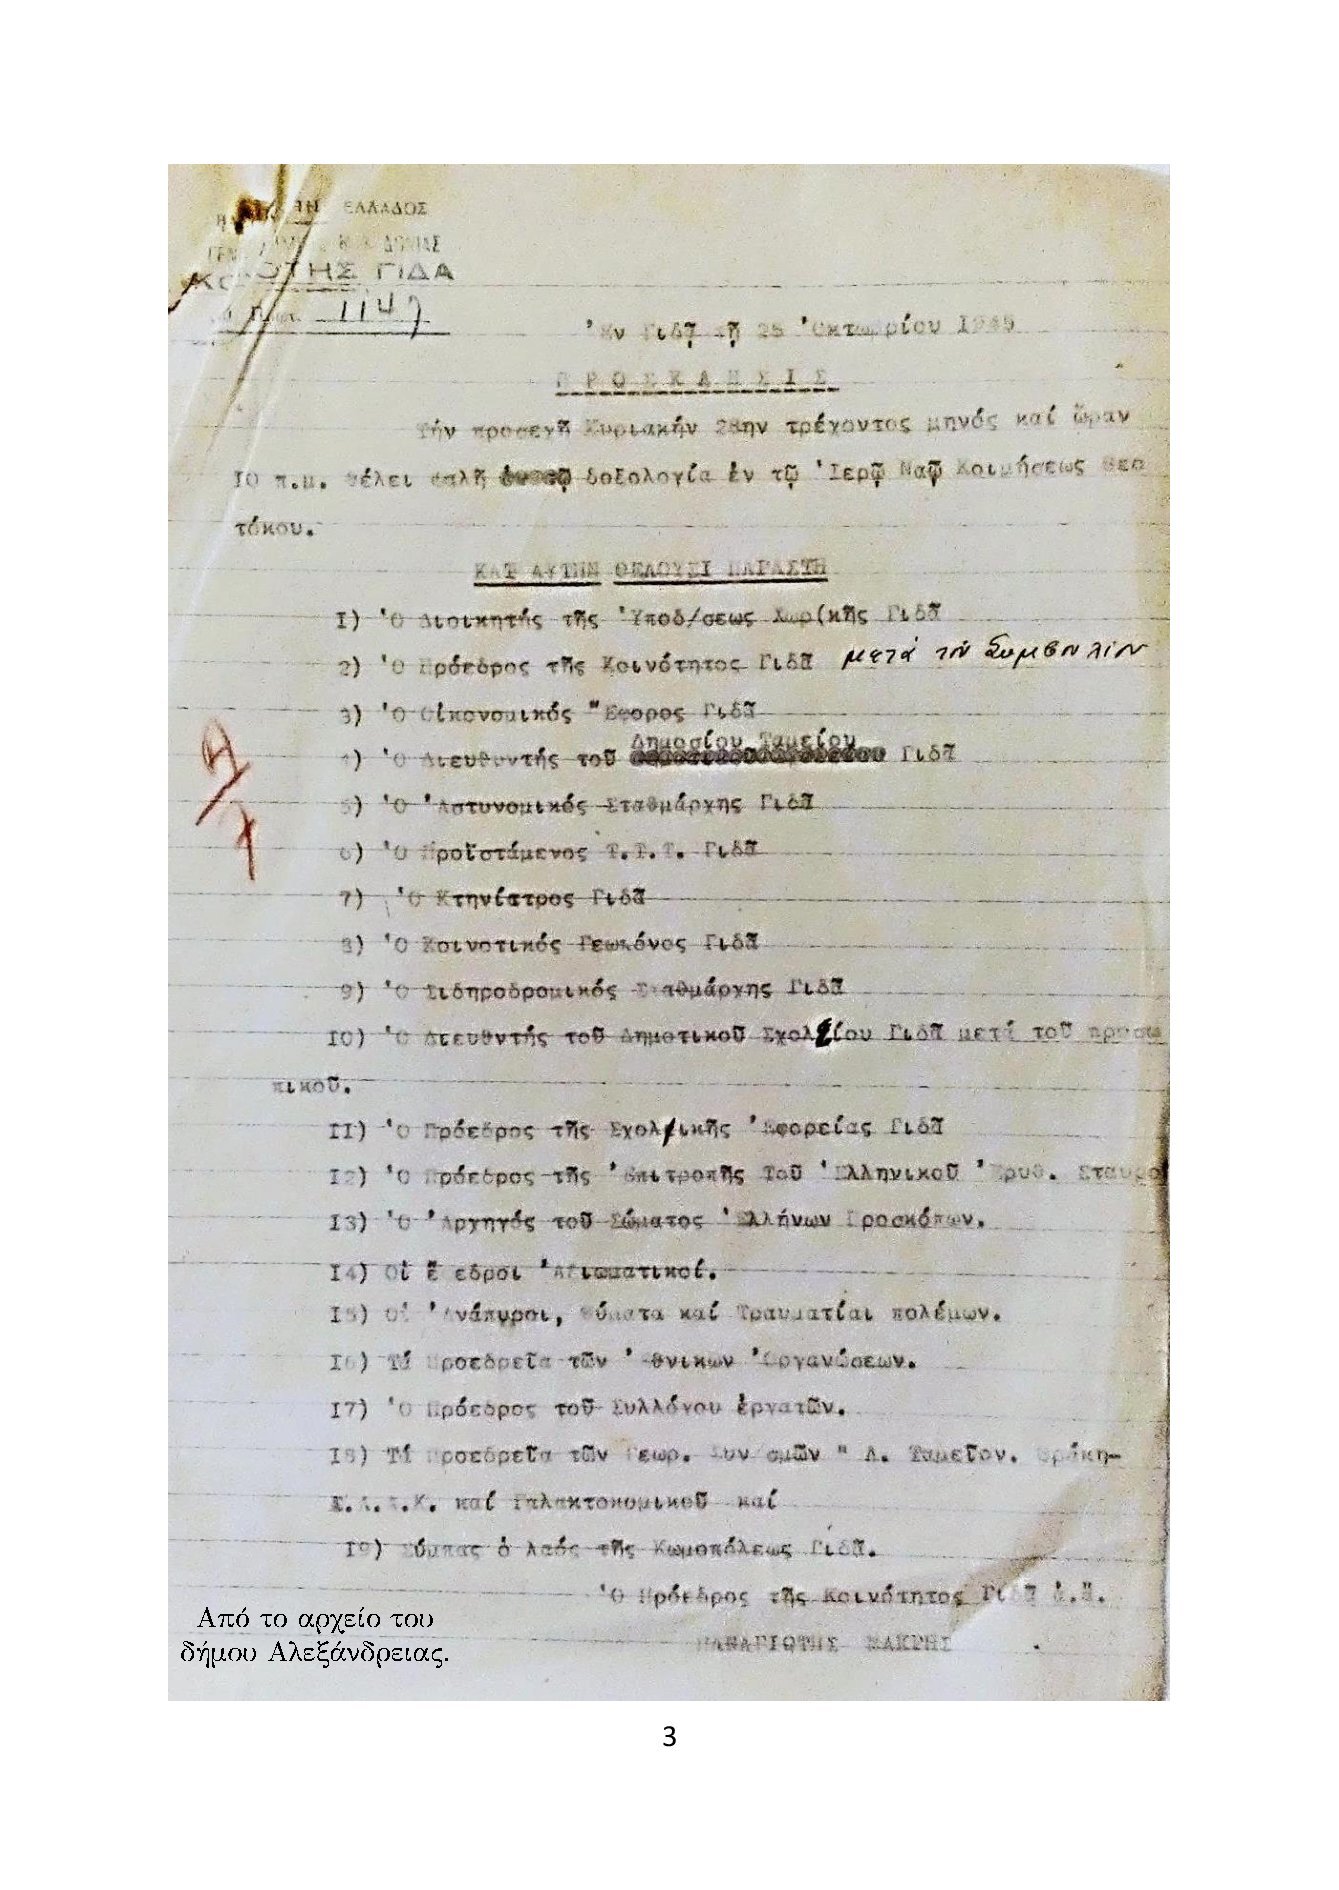 ΕΛΛΑΔΟΣ
ΚΟΙΝΟΤΗΣ ΓΙΔΑ
1147
Ἐν Γιδᾷ τῇ 25 Ὀκτωβρίου 1945
ΠΡΟΣΚΛΗΣΙΣ
Τήν προσεχῆ Κυριακήν 28ην τρέχοντος μηνός καί ὥραν
10 π.μ. θέλει ψαλῆ δοξολογία ἐν τῷ Ἱερῷ Ναῷ Κοιμήσεως Θεο
τόκου.
ΚΑΤ ΑΥΤΗΝ ΘΕΛΟΥΣΙ ΠΑΡΑΣΤΗ
1) Ὁ Διοικητής τῆς Ὑποδ/σεως Χωρ(κῆς Γιδᾶ
2) Ὁ Πρόεδρος τῆς Κοινότητος Γιδᾶ μετά τοῦ Συμβουλίου
3) Ὁ Οἰκονομικός Ἔφορος Γιδᾶ
Δημοσίου Ταμείου
4) Ὁ Διευθυντής τοῦ Γιδᾶ
5) Ὁ Ἀστυνομικός Σταθμάρχης Γιδᾶ
6) Ὁ Προϊστάμενος Τ.Τ.Τ. Γιδᾶ
7) Ὁ Κτηνίατρος Γιδᾶ
8) Ὁ Κοινοτικός Γεωπόνος Γιδᾶ
9) Ὁ Σιδηροδρομικός Σταθμάρχης Γιδᾶ
10) Ὁ Διευθντής τοῦ Δημοτικοῦ Σχολείου Γιδᾶ μετά τοῦ προσω
πικοῦ.
11) Ὁ Πρόεδρος τῆς Σχολικῆς Ἐφορείας Γιδᾶ
12) Ὁ Πρόεδρος τῆς Ἐπιτροπῆς Τοῦ Ἑλληνικοῦ Ἐρυθ. Σταυρο
13) Ὁ Ἀρχηγός τοῦ Σώματος Ἑλλήνων Προσκόπων.
14) Οἱ ἔ εδροι Ἀξιωματικοί.
15) Οἱ Ἀνάπηροι, Θύματα καί Τραυματίαι πολέμων.
16) Τά Προεδρεῖα τῶν Ἐθνικῶν Ὀργανώσεων.
17) Ὁ Πρόεδρος τοῦ Συλλόγου ἐργατῶν.
18) Τά Προεδρεῖα τῶν Γεωρ. Συν/σμῶν " Α. Ταμεῖον. Θράκη-
καί Γαλακτοκομικοῦ καί
19) Σύμπας ὁ λαός τῆς Κωμοπόλεως Γιδᾶ.
Ὁ Πρόεδρος τῆς Κοινότητος Γιδᾶ
ΠΑΝΑΓΙΩΤΗΣ ΜΑΚΡΗΣ
Από το αρχείο του
δήμου Αλεξάνδρειας.
3